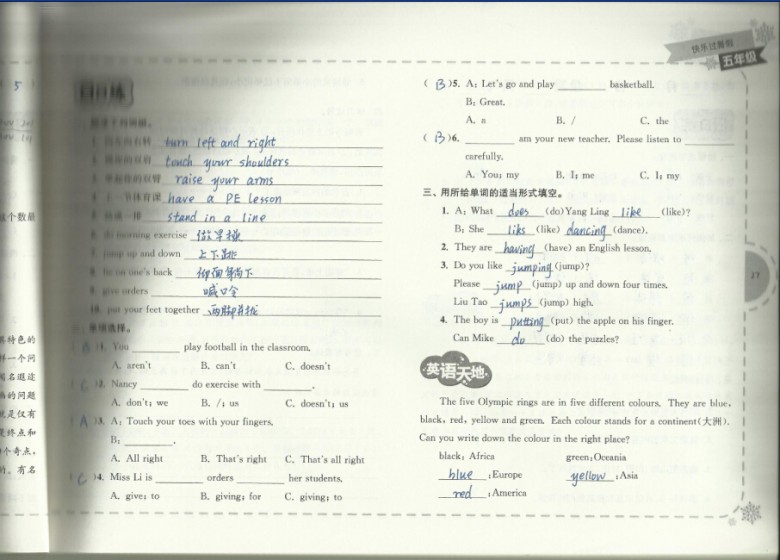 快乐过暑假
五年级
5
turn left and right
touch your shoulders
raise your arms
上一节体育课 have a PE lesson
站成一排 stand in a line
6. do morning exercise 做早操
7. jump up and down 上下跳
8. lie on one's back 仰面躺下
9. give orders 喊口令
10. put your feet together 两脚并拢
二、单项选择。
( B )1. You ______ play football in the classroom.
A. aren't B. can't C. doesn't
( C )2. Nancy ______ do exercise with ______.
A. don't; we B. /; us C. doesn't; us
( A )3. A: Touch your toes with your fingers.
B: ______.
A. All right B. That's right C. That's all right
( C )4. Miss Li is ______ orders ______ her students.
A. give; to B. giving; for C. giving; to
( B )5. A: Let's go and play ______ basketball.
B: Great.
A. a B. / C. the
( B )6. ______ am your new teacher. Please listen to ______
carefully.
A. You; my B. I; me C. I; my
三、用所给单词的适当形式填空。
1. A: What does (do) Yang Ling like (like)?
B: She liks (like) dancing (dance).
2. They are having (have) an English lesson.
3. Do you like jumping (jump)?
Please jump (jump) up and down four times.
Liu Tao jumps (jump) high.
4. The boy is putting (put) the apple on his finger.
Can Mike do (do) the puzzles?
英语天地
The five Olympic rings are in five different colours. They are blue,
black, red, yellow and green. Each colour stands for a continent(大洲).
Can you write down the colour in the right place?
black: Africa green: Oceania
blue : Europe yellow : Asia
red : America
37
这个数最
其特色的
样一个问
闻名遐迩
的问题
就是仅有
是终点和
个奇点，
的。有名